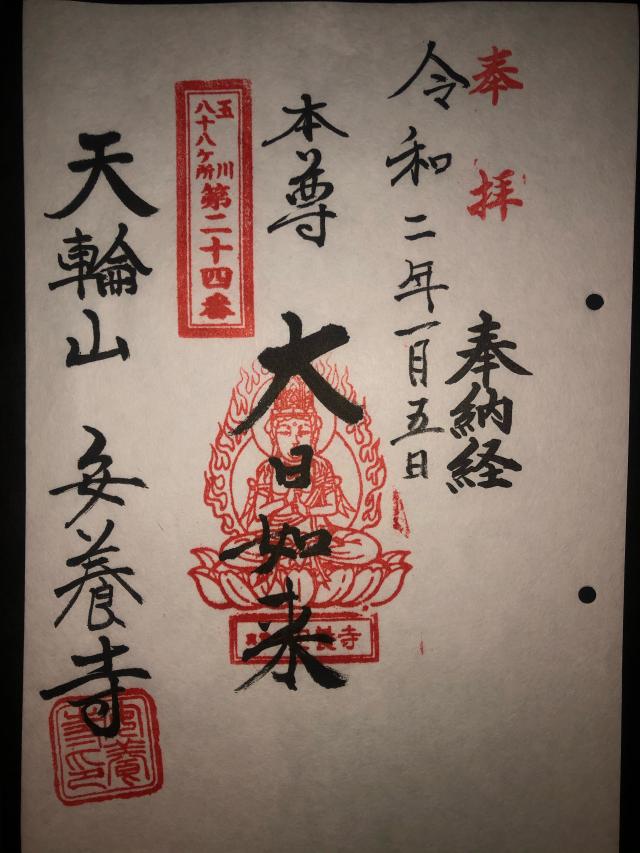 奉拝
奉納経
令和二年一月五日
本尊 大日如来
玉川
八十八ヶ所
第二十四番
天輪山 安養寺
養寺